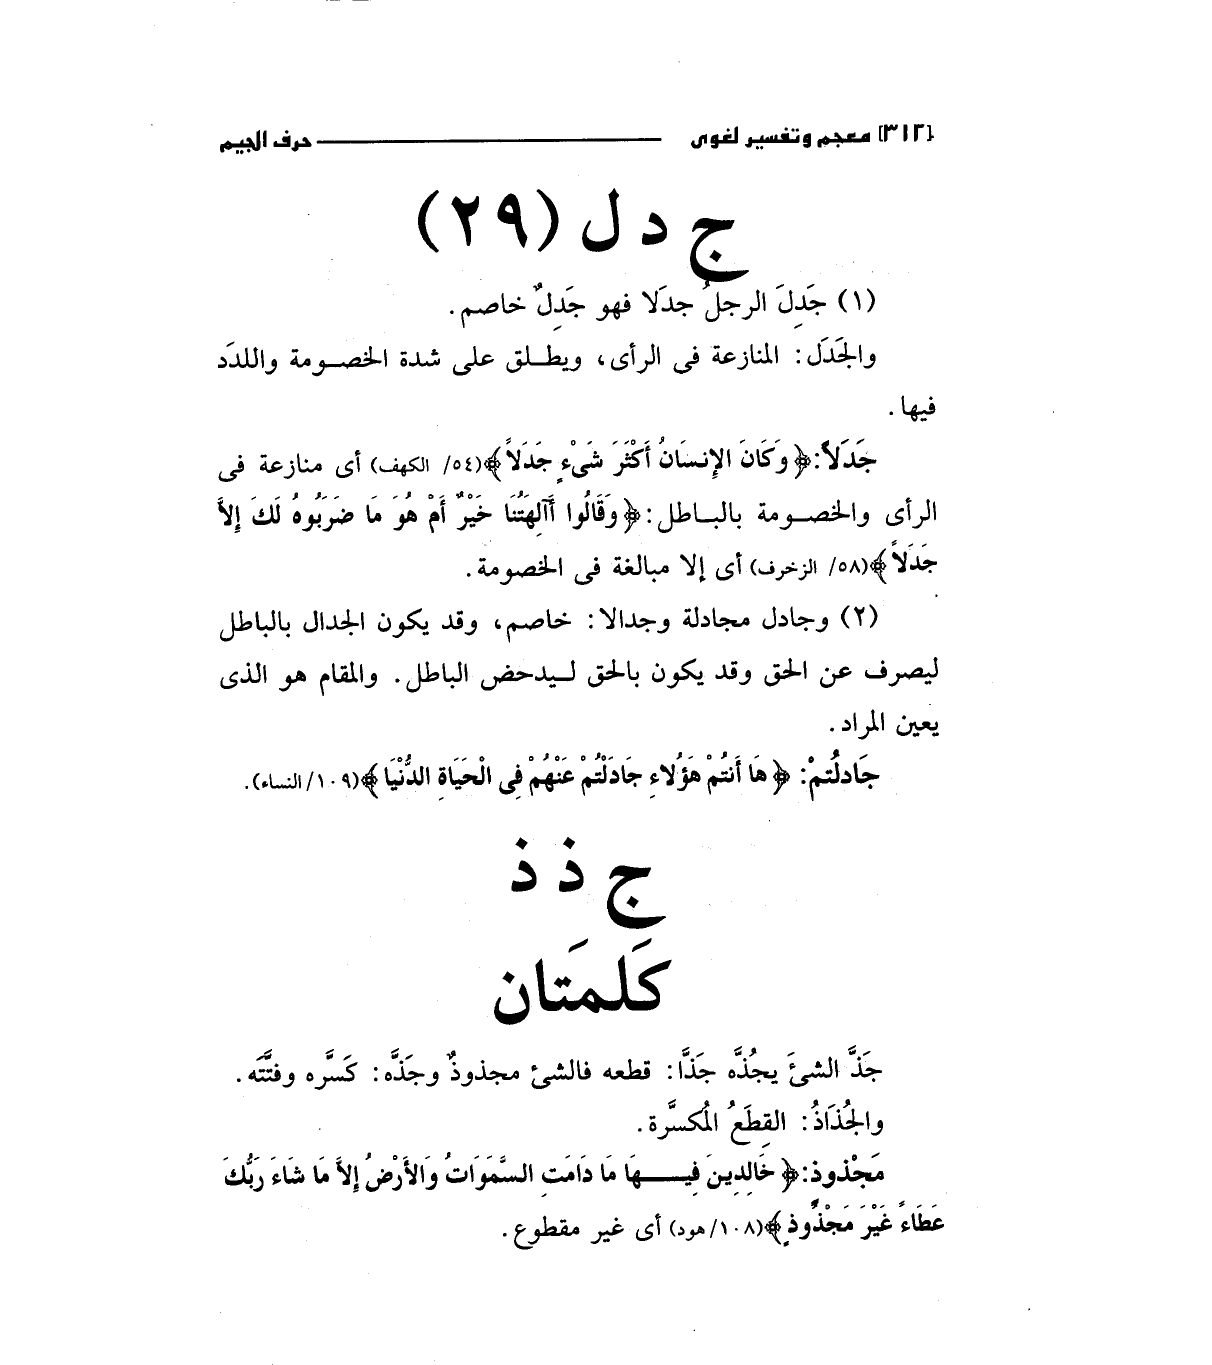 [٣١٢] معجم وتفسير لغوى حرف الجيم
ج د ل (٢٩)
(١) جَدِلَ الرجلُ جدَلا فهو جَدِلٌ خاصم.
والجَدَل: المنازعة فى الرأى، ويطلق على شدة الخصومة واللدَد
فيها.
جَدَلاً: ﴿وَكَانَ الإِنسَانُ أَكْثَرَ شَىْءٍ جَدَلاً﴾(٥٤/ الكهف) أى منازعة فى
الرأى والخصومة بالباطل: ﴿وَقَالُوا أَآلِهَتُنَا خَيْرٌ أَمْ هُوَ مَا ضَرَبُوهُ لَكَ إِلاَّ
جَدَلاً﴾(٥٨/ الزخرف) أى إلا مبالغة فى الخصومة.
(٢) وجادل مجادلة وجدالا: خاصم، وقد يكون الجدال بالباطل
ليصرف عن الحق وقد يكون بالحق ليدحض الباطل. والمقام هو الذى
يعين المراد.
جَادلْتمْ: ﴿هَا أَنتُمْ هَؤُلاءِ جَادَلْتُمْ عَنْهُمْ فِى الْحَيَاةِ الدُّنْيَا﴾(١٠٩/النساء).
ج ذ ذ
كَلمَتان
جَذَّ الشئَ يجُذَّه جَذَّا: قطعه فالشئ مجذوذٌ وجَذَّه: كَسَّره وفتَّتَه.
والجُذَاذُ: القِطَعُ المُكسَّرة.
مَجْذوذٍ: ﴿خَالِدِينَ فِيهَا مَا دَامَتِ السَّمَوَاتُ وَالأَرْضُ إِلاَّ مَا شَاءَ رَبُّكَ
عَطَاءً غَيْرَ مَجْذُوذٍ﴾(١٠٨/هود) أى غير مقطوع.